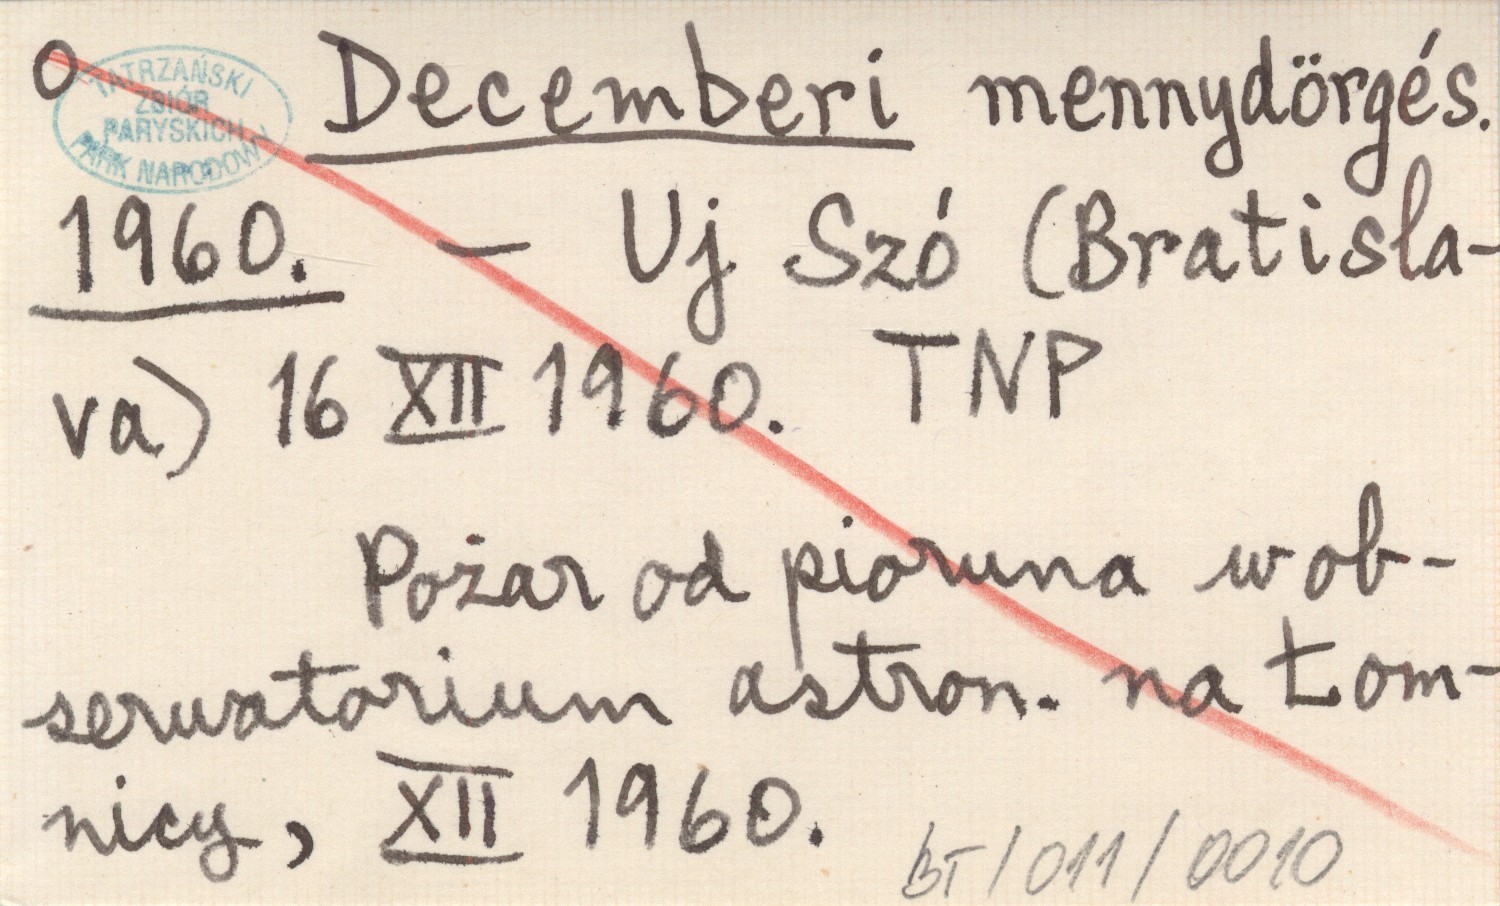 O
TATRZAŃSKI
ZBIÓR
PARYSKICH
PARK NARODOWY
Decemberi mennydörgés.
1960. — Uj Szó (Bratisla-
va) 16 XII 1960. TNP
Pożar od pioruna w ob-
serwatorium astron. na Łom-
nicy, XII 1960.
BT/011/0010